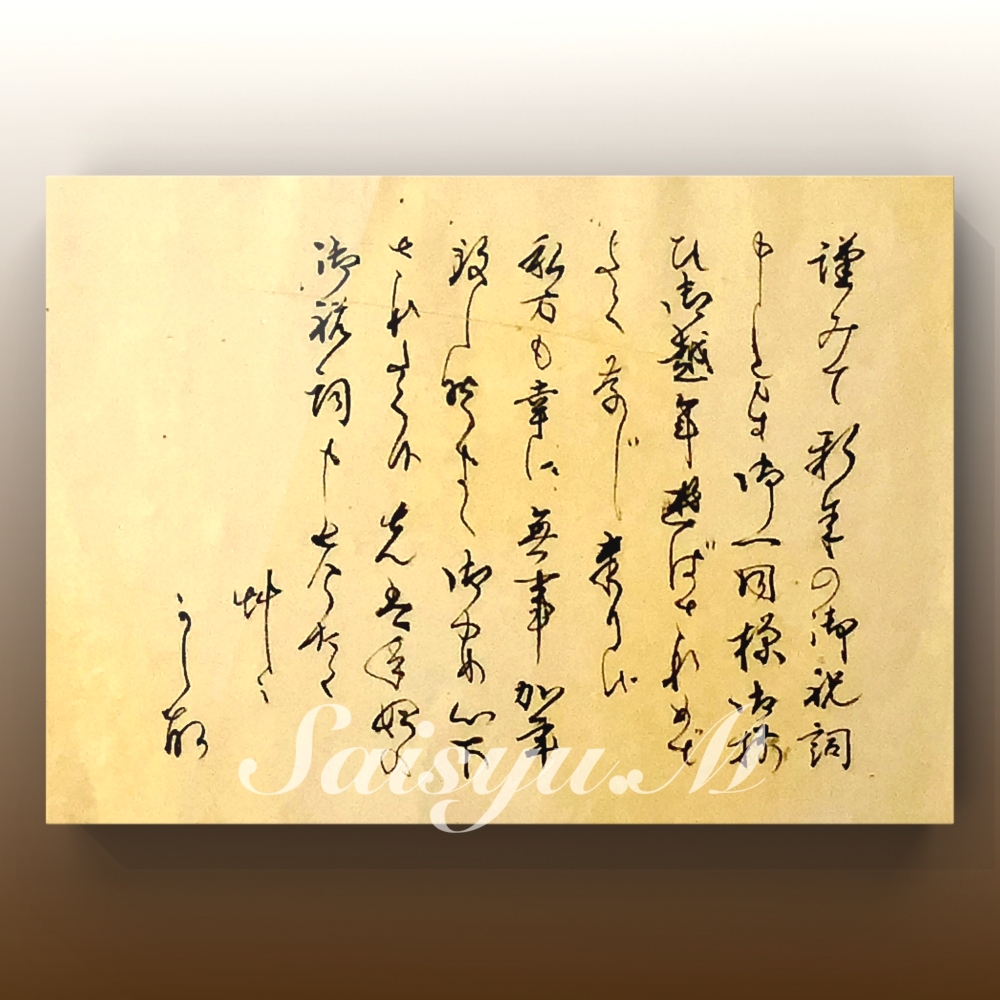 謹みて新年の御祝詞
申し上ます御一同様御揃
ひ御越年遊ばされめで
たく存じ奉り候
私方も幸に無事加年
致し候まゝ御安心下
されたく候先は年始の
御祝詞申し上度
艸々
かしこ
Saisyu.M